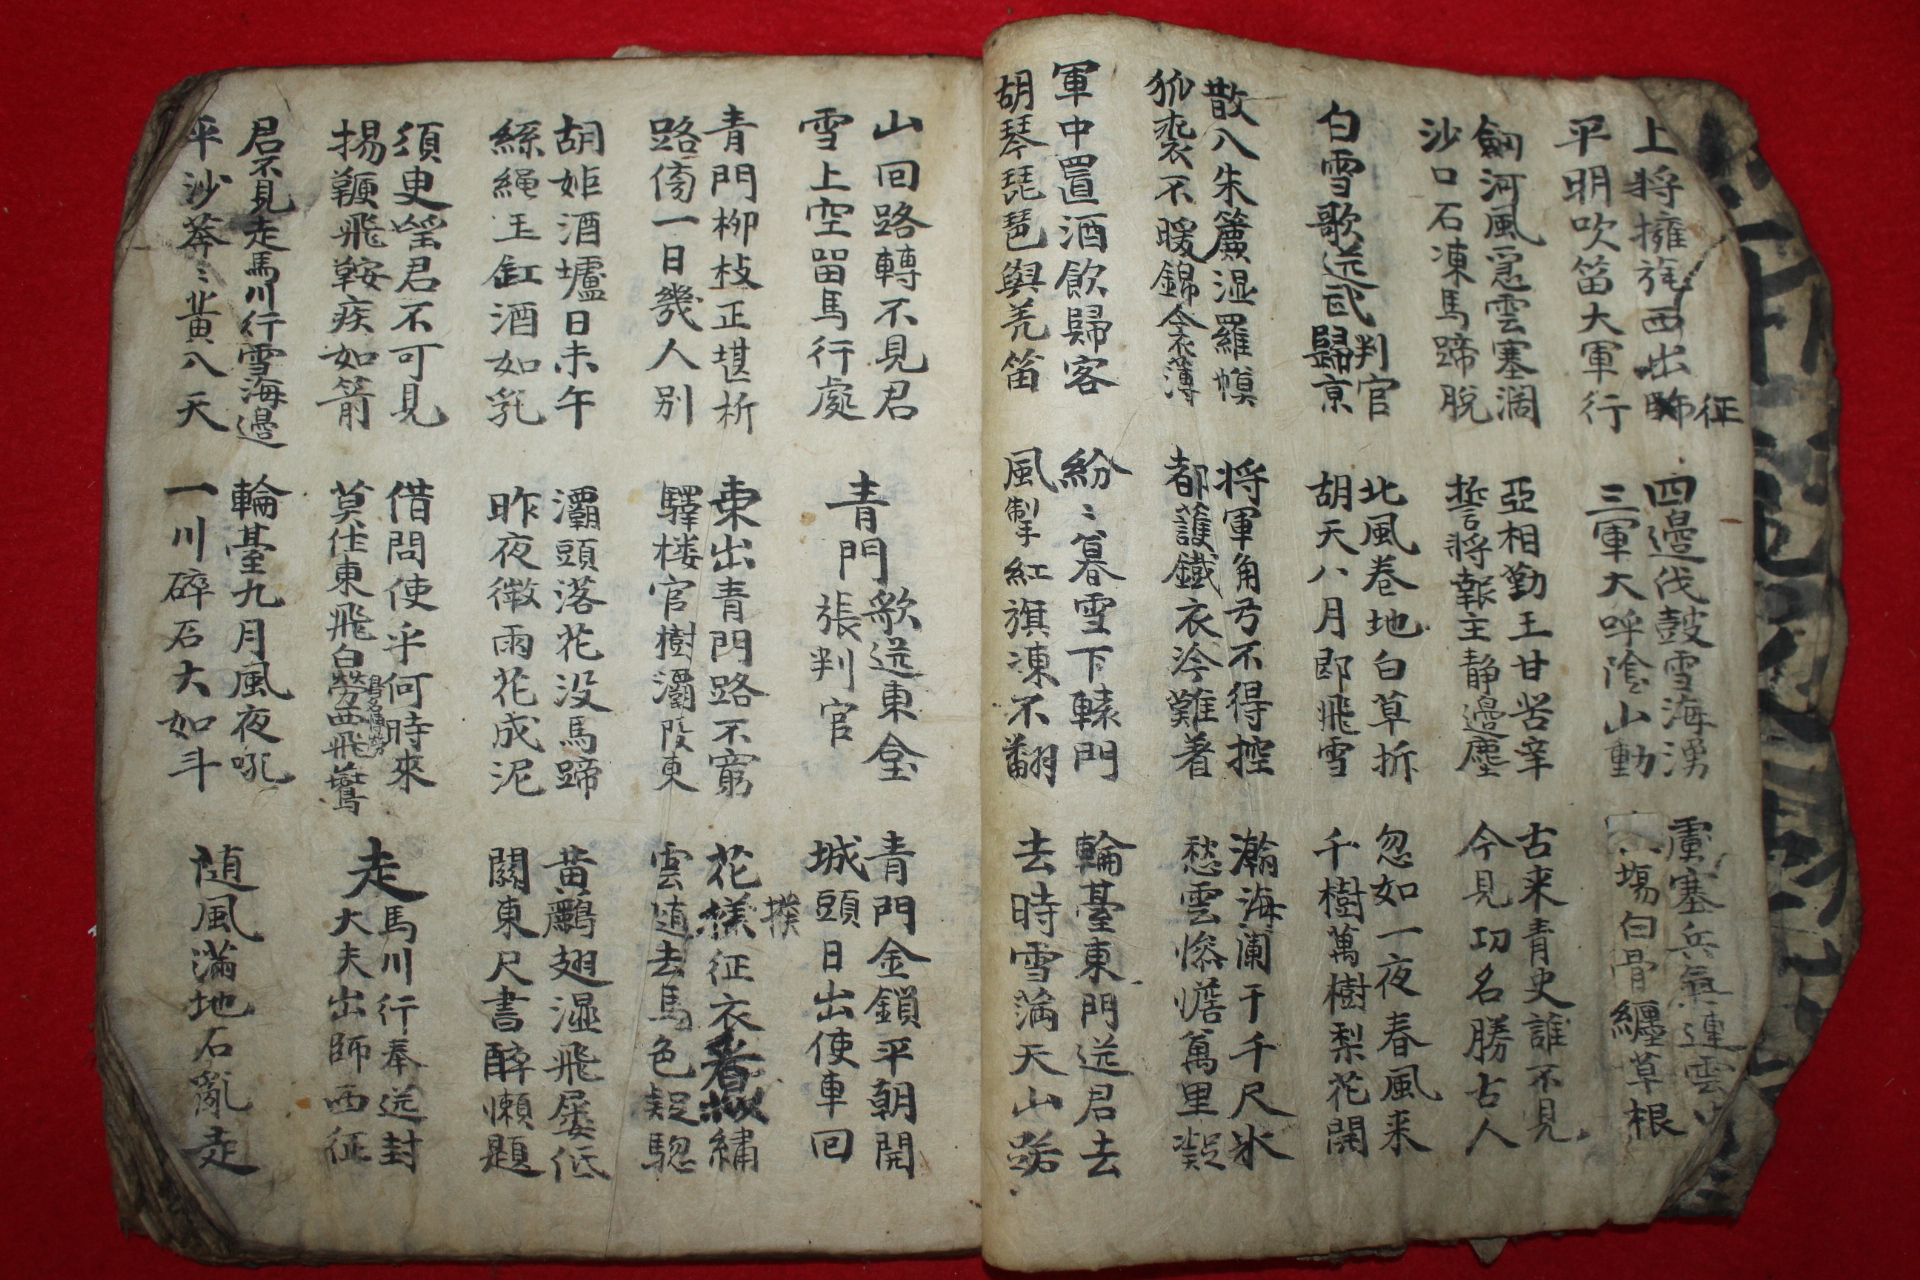 上将擁旄西出征
平明吹笛大軍行
四邊伐鼓雪海湧
三軍大呼陰山動
虜塞兵氣連雲
塲白骨纏草根
劒河風急雲塞濶
沙口石凍馬蹄脫
亞相勤王甘苦辛
誓将報主静邊塵
古来青史誰不見
今見功名勝古人
白雪歌送武判官歸京
北風卷地白草折
胡天八月即飛雪
忽如一夜春風来
千樹萬樹梨花開
散入朱簾湿羅幙
狐裘不暖錦衾薄
将軍角弓不得控
都護鐵衣冷難着
瀚海闌干千尺氷
愁雲慘憺萬里凝
軍中置酒飮歸客
胡琴琵琶與羌笛
紛〻暮雪下轅門
風掣紅旗凍不翻
輪臺東門送君去
去時雪満天山路
山回路轉不見君
雪上空留馬行處
青門歌送東臺張判官
青門金鎖平朝開
城頭日出使車回
青門柳枝正堪折
路傍一日幾人別
東出青門路不窮
驛楼官樹灞陵東
花撲征衣看繡
雲随去馬色疑驄
胡姬酒壚日未午
絲繩玉缸酒如乳
灞頭落花没馬蹄
昨夜微雨花成泥
黄鸝翅湿飛屡低
關東尺書醉懶題
須臾望君不可見
揚鞭飛鞍疾如箭
借問使乎何時來
莫作東飛白勞西飛鷰
走馬川行奉送封大夫出師西征
君不見走馬川行雪海邊
平沙莽〻黄入天
輪臺九月風夜吼
一川碎石大如斗
随風満地石亂走